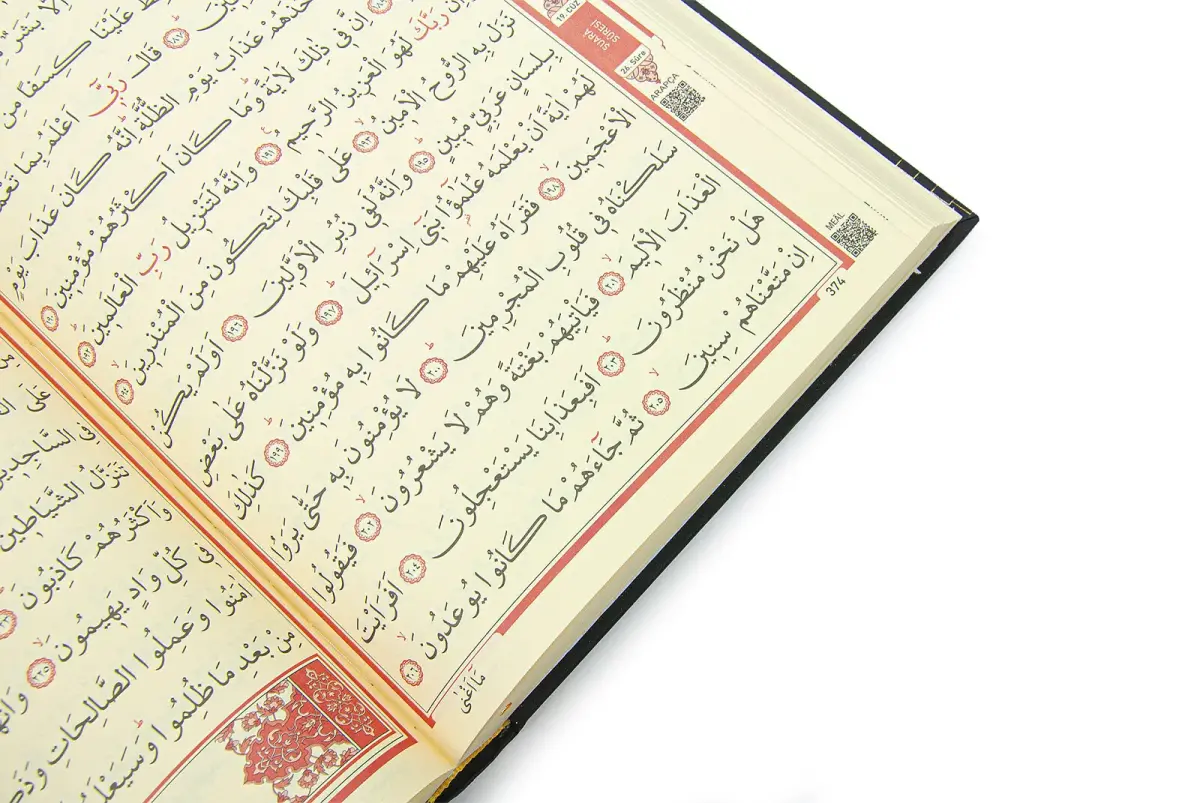 عَلَيْنَا كِسَفًا مِنَ
١٨٧ قَالَ رَبِّى اَعْلَمُ بِمَا
عَذَابُ يَوْمِ الظُّلَّةِ اِنَّهُ كَانَ عَذَابَ يَوْمٍ
اِنَّ فِى ذٰلِكَ لَاٰيَةً وَمَا كَانَ اَكْثَرُهُمْ مُؤْمِنِينَ ١٩٠
رَبَّكَ لَهُوَ الْعَزِيزُ الرَّحِيمُ ١٩١ وَاِنَّهُ لَتَنْزِيلُ رَبِّ الْعَالَمِينَ ١٩٢
نَزَلَ بِهِ الرُّوحُ الْاَمِينُ ١٩٣ عَلٰى قَلْبِكَ لِتَكُونَ مِنَ الْمُنْذِرِينَ ١٩٤
بِلِسَانٍ عَرَبِىٍّ مُبِينٍ ١٩٥ وَاِنَّهُ لَفِى زُبُرِ الْاَوَّلِينَ ١٩٦ اَوَلَمْ يَكُنْ
لَهُمْ اٰيَةً اَنْ يَعْلَمَهُ عُلَمٰٓؤُا بَنِٓى اِسْرَٓائِيلَ ١٩٧ وَلَوْ نَزَّلْنَاهُ عَلٰى بَعْضِ
الْاَعْجَمِينَ ١٩٨ فَقَرَاَهُ عَلَيْهِمْ مَا كَانُوا بِهِ مُؤْمِنِينَ ١٩٩ كَذٰلِكَ
سَلَكْنَاهُ فِى قُلُوبِ الْمُجْرِمِينَ ٢٠٠ لَا يُؤْمِنُونَ بِهِ حَتّٰى يَرَوُا
الْعَذَابَ الْاَلِيمَ ٢٠١ فَيَاْتِيَهُمْ بَغْتَةً وَهُمْ لَا يَشْعُرُونَ ٢٠٢ فَيَقُولُوا
هَلْ نَحْنُ مُنْظَرُونَ ٢٠٣ اَفَبِعَذَابِنَا يَسْتَعْجِلُونَ ٢٠٤ اَفَرَاَيْتَ
اِنْ مَتَّعْنَاهُمْ سِنِينَ ٢٠٥ ثُمَّ جَٓاءَهُمْ مَا كَانُوا يُوعَدُونَ ٢٠٦
مَٓا اَغْنٰى
19. CÜZ
ŞUARÂ
SÛRESİ
26. Sûre
ARAPÇA
MEÂL
374
فِى السَّاجِدِينَ
تَنَزَّلُ الشَّيَاطِينُ
وَاَكْثَرُهُمْ كَاذِبُونَ
فِى كُلِّ وَادٍ يَهِيمُونَ ٢٢٥
اٰمَنُوا وَعَمِلُوا الصَّالِحَاتِ
مِنْ بَعْدِ مَا ظُلِمُوا